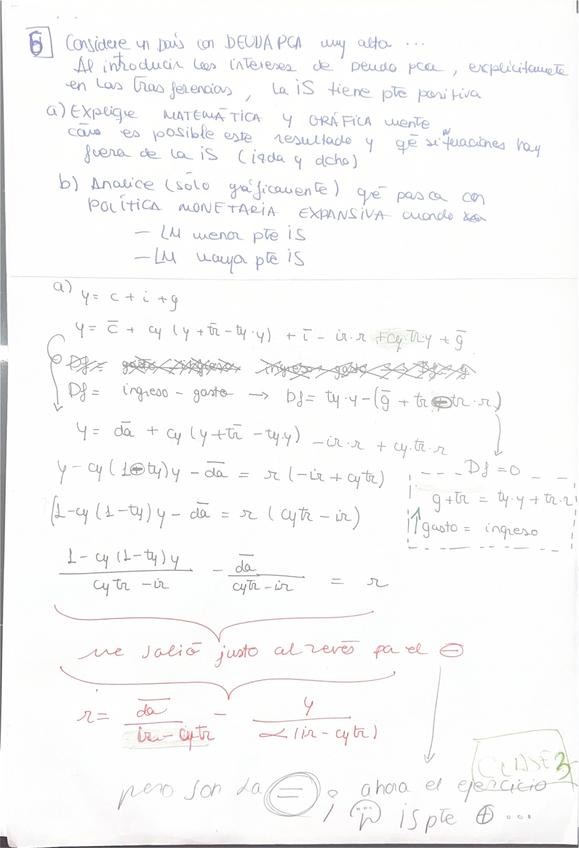 6 Considere un país con DEUDA PCA muy alta ...
Al introducir los intereses de deuda pca, explícitamete
en las trasferencias, la iS tiene pte positiva
a) EXPLIQUE MATEMÁTICA y GRÁFICA mente
cómo es posible este resultado y qé situaciones hay
fuera de la iS (izda y dcha)
b) Analice (sólo gráficamente) qé pasa con
POLÍTICA MONETARIA EXPANSIVA cuando
- LM menor pte iS
- LM mayor pte iS
a) y = c + i + g
y = c̄ + cy (y + t̄r - ty·y) + ī - ir·r + cy·tr·r + ḡ
Df = ingreso - gasto → Df = ty·y - (ḡ + tr - tr·r)
y = d̄a + cy (y + t̄r - ty·y) - ir·r + cy·tr·r
Df = 0
y - cy (1 - ty)y - d̄a = r (-ir + cytr)
g + tr = ty·y + tr·r
(1 - cy (1 - ty) y - d̄a = r (cytr - ir)
↑gasto = ingreso
1 - cy (1 - ty) y / cytr - ir - d̄a / cytr - ir = r
me salió justo al revés pa el ⊖
r = d̄a / ir - cytr - y / α (ir - cytr)
CLASE 3
pero son la = ; ahora el ejercicio
is pte ⊕ ...